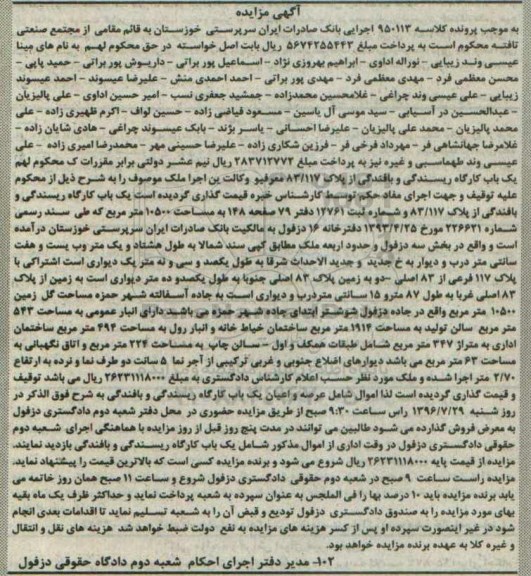 آگهی مزایده
به موجب پرونده کلاسه ۹۵۰۱۱۳ اجرایی بانک صادرات ایران سرپرستی خوزستان به قائم مقامی از مجتمع صنعتی
تافته محکوم است به پرداخت مبلغ ۵۶۷۴۲۵۵۴۴۳ ریال بابت اصل خواسته در حق محکوم لهم به نام های مینا
عیسی وند زیبایی - نوراله اداوی - ابراهیم بهروزی نژاد - اسماعیل پور براتی - داریوش پور براتی - حمید پاپی -
محسن معظمی فرد - مهدی معظمی فرد - مهدی پور براتی - احمد احمدی منش - علیرضا عیسوند - احمد عیسوند
زیبایی - علی عیسی وند چراغی - غلامحسین محمدزاده - جمشید جعفری نسب - امیر حسین اداوی - علی پالیزیان
- عبدالحسین در آسیابی - سید موسی آل یاسین - مسعود فیاضی زاده - حسین لواف - اکرم ظهیری زاده - علی
محمد پالیزبان - محمد علی پالیزبان - علیرضا احسانی - یاسر بژند - بابک عیسوند چراغی - هادی شایان زاده -
غلامرضا جهانشاهی فر - مهرداد فرخی فر - فرزین شکاری زاده - علیرضا حسینی مهر - محمدرضا امیری زاده - علی
عیسی وند طهماسبی و غیره نیز به پرداخت مبلغ ۲۸۳۷۱۲۷۷۲ ریال نیم عشر دولتی برابر مقررات ک محکوم لهم
یک باب کارگاه ریسندگی و بافندگی از پلاک ۸۳/۱۱۷ معرفیو وکالت ین اجرا ملک موصوف را به شرح ذیل از محکوم
علیه توقیف و جهت اجرای مفاد حکم توسط کارشناس خبره قیمت گذاری گردیده است یک باب کارگاه ریسندگی و
بافندگی از پلاک ۸۳/۱۱۷ و شماره ثبت ۱۲۷۶۱ دفتر ۷۹ صفحه ۱۴۸ به مساحت ۱۰۵۰۰ متر مربع که طی سند رسمی
شماره ۲۲۶۶۲۱ مورخ ۱۳۹۳/۴/۲۵ دفترخانه ۱۶ دزفول به مالکیت بانک صادرات ایران سرپرستی خوزستان درآمده
است و واقع در بخش سه دزفول و حدود اربعه ملک مطابق کپی سند شمالا به طول هشتاد و یک متر وب یست و هفت
سانتی متر درب و دیوار به خ جدید و جدید الاحداث شرقا به طول یکصد و سی و نه متر یک دیواری است اشتراکی با
پلاک ۱۱۷ فرعی از ۸۳ اصلی -دو به زمین پلاک ۸۳ اصلی جنوبا به طول یکصدو ده متر دیواری است به زمین از پلاک
۸۳ اصلی غربا به طول ۸۷ مترو ۱۵ سانتی متردرب و دیواری است به جاده آسفالته شهر حمزه مساحت گل زمین
۱۰۵۰۰ متر مربع واقع در جاده دزفول شوشتر ابتدای جاده شهر حمزه می باشد دارای انبار عمومی به مساحت ۵۴۳
متر مربع سالن تولید به مساحت ۱۹۱۴ متر مربع ساختمان خیاط خانه و انبار رول به مساحت ۴۹۴ متر مربع ساختمان
اداری به متراژ ۳۴۷ متر مربع شامل طبقات همکف و اول - سالن چاپ به مساحت ۲۲۴ متر مربع و اتاق نگهبانی به
مساحت ۶۳ متر مربع می باشد دیوارهای اضلاع جنوبی و غربی ترکیبی از آجر نما ۵ سانت دو طرف نما و نرده به ارتفاع
۲/۷۰ متر اجرا شده و ملک مورد نظر حسب اعلام کارشناس دادگستری به مبلغ ۲۶۲۳۱۱۱۸۰۰۰ ریال می باشد توقیف
و قیمت گذاری گردیده است لذا اموال شامل عرصه واعیان یک باب کارگاه ریسندگی و بافندگی به شرح فوق الذکر در
روز شنبه ۱۳۹۶/۷/۲۹ راس ساعت ۹:۳۰ صبح از طریق مزایده حضوری در محل دفتر شعبه دوم دادگستری دزفول
به معرض فروش گذارده می شود طالبین می توانند در مدت پنج روز قبل از روز مزایده با هماهنگی اجرای شعبه دوم
حقوقی دادگستری دزفول در وقت اداری از اموال مذکور شامل یک باب کارگاه ریسندگی و بافندگی بازدید نمایند.
مزایده از قیمت پایه ۲۶۲۳۱۱۱۸۰۰۰ ریال شروع می شود و برنده مزایده کسی است که بالاترین قیمت را پیشنهاد نماید.
مزایده راست ساعت ۹ صبح در شعبه دوم حقوقی دادگستری دزفول شروع و ساعت ۱۱ صبح همان روز خاتمه می
یابد برنده مزایده باید ۱۰ درصد بها را فی المجلس به عنوان سپرده به شعبه پرداخت نماید و حداکثر ظرف یک ماه بقیه
بهای مورد مزایده را به صندوق دادگستری دزفول تودیع و قبض آن را به شعبه تسلیم نماید تا اقدامات بعدی انجام
شود در غیر اینصورت سپرده او پس از کسر هزینه های مزایده به نفع دولت ضبط خواهد شد هزینه های نقل و انتقال
و غیره کلا به عهده برنده مزایده خواهد بود.
۱۰۲- مدیر دفتر اجرای احکام شعبه دوم دادگاه حقوقی دزفول